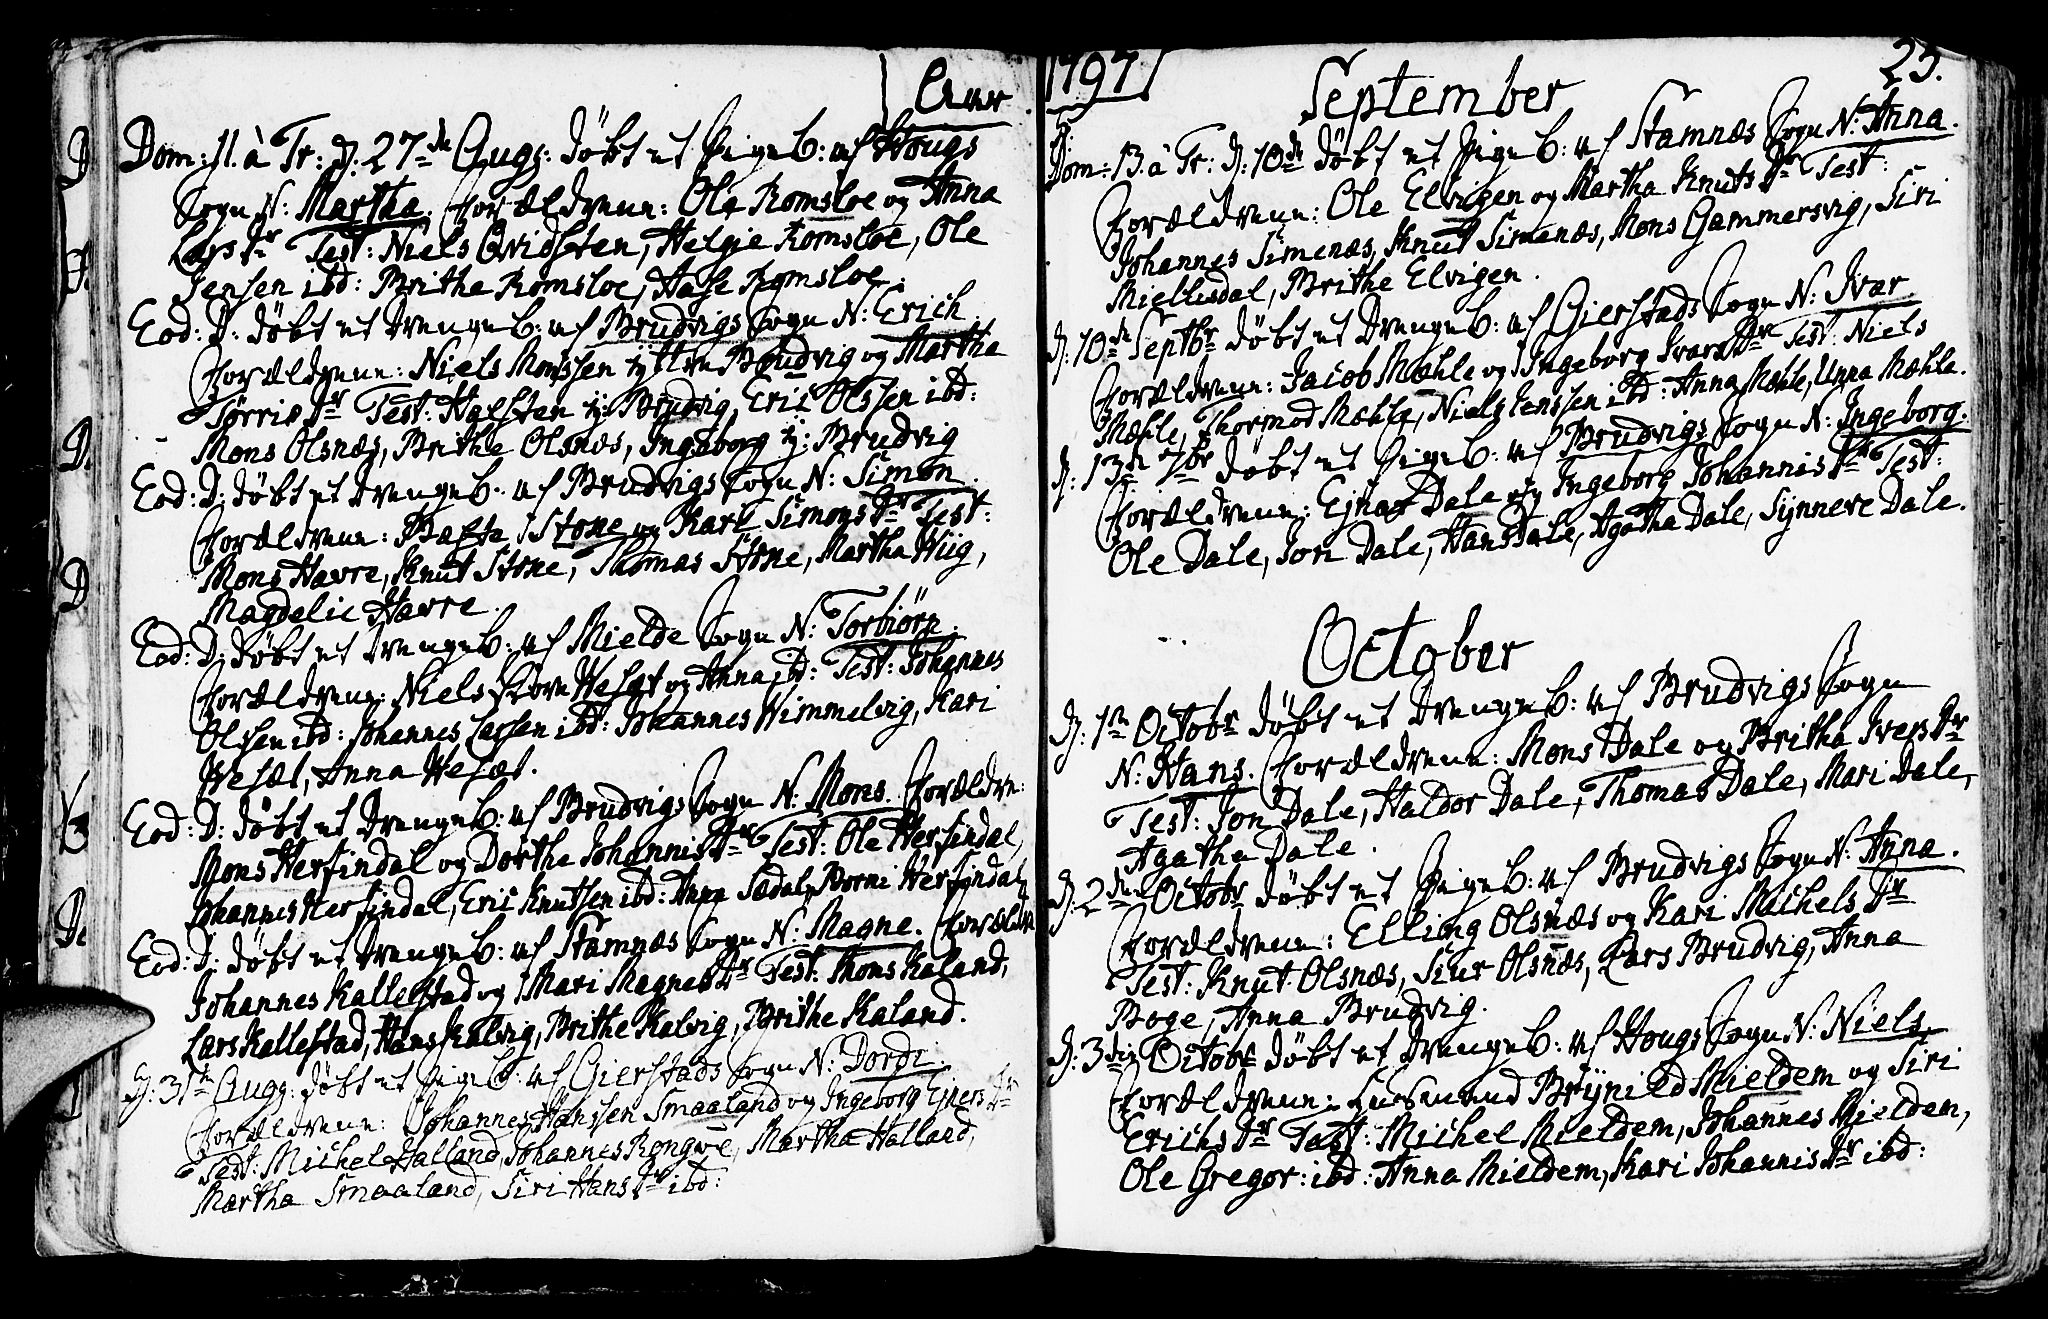 Aar
Dom: 11. à Tr: D. 27de Aug: döbt et PigeB: af Hougs
Sogn N: Martha. Forældrene: Ole Romsloe og Anna
Larsdr Test: Niels Qvidsten, Helgie Romsloe, Ole
Jensen ibd: Brithe Romsloe, Aase Romsloe.
Eod: D: döbt et DrengeB: af Brudvigs Sogn N: Erich
Forældrene: Niels Monssen Brudvig og Martha
Törrisdr Test: Halsten Brudvig, Eric Olssen ibd:
Mons Olsnæs, Brithe Olsnæs, Ingeborg Brudvig
Eod: D: döbt et DrengeB: af Brudvigs Sogn N: Simon
Forældrene: Stone og Kari Simonsdr Test:
Mons Havre, Knut Stone, Thomas Stone, Martha Wiig,
Magdelie Havre.
Eod: D: döbt et DrengeB: af Mielde Sogn N: Torbiörn.
Forældrene: Niels Wesæt og Anna ibd: Test: Johannes
Olssen ibd: Johannes Larsen ibd: Johannes Wimmelvig, Kari
Wesæt, Anna Wesæt.
Eod: D: döbt et DrengeB: af Brudvigs Sogn N: Mons. Forældre:
Mons Herfindal og Dorthe Johannisdr Test: Ole Herfindal,
Johannes Herfindal, Eric Knutsen ibd: Anna Sædal, Borni Herfindal
Eod: D: döbt et DrengeB: af Stamnæs Sogn N: Magne. Forældre
Johannes Kallestad og Mari Magnesdr Test: Mons Kaland,
Lars Kallestad, Hans Kalvig, Brithe Kalvig, Brithe Kaland.
D: 31te Aug: döbt et PigeB: af Gierstads Sogn N: Dordi
Forældrene: Johannes Hanssen Smaaland og Ingeborg Ejnersdr
Test: Michel Halland, Johannes Rongve, Martha Halland,
Martha Smaaland, Siri Hansdr ibd:
1797
23.
September
Dom: 13. à Tr: D: 10de döbt et PigeB: af Stamnæs Sogn N: Anna.
Forældrene: Ole Elvigen og Martha Knutsdr Test:
Johannes Simenæs, Knut Simenæs, Mons Gammersvig, Siri
Miellisdal, Brithe Elvigen.
D: 10de Septbr döbt et DrengeB: af Gierstads Sogn N: Ivar
Forældrene: Jacob Mæhle og Ingeborg Ivarsdr Test: Niels
Mæhle, Thormod Mæhle, Niels Jenssen ibd: Anna Mæhle, Unna Mæhle.
D: 13de 7br döbt et PigeB: af Brudvigs Sogn N: Ingeborg.
Forældrene: Ejnar Dale og Ingeborg Johannisdr Test:
Ole Dale, Jon Dale, Hans Dale, Agatha Dale, Synneve Dale.
October
D: 1te Octobr döbt et DrengeB: af Brudvigs Sogn
N: Hans. Forældrene: Mons Dale og Britha Iversdr
Test: Jon Dale, Haldor Dale, Thomas Dale, Mari Dale,
Agatha Dale.
D: 2den Octobr döbt et PigeB: af Brudvigs Sogn N: Anna.
Forældrene: Elling Olsnæs og Kari Michelsdr
Test: Knut Olsnæs, Siur Olsnæs, Lars Brudvig, Anna
Boge, Anna Brudvig.
D: 3die Octobr döbt et DrengeB: af Hougs Sogn N: Niels.
Forældrene: Brynild Mieldem og Siri
Erichsdr Test: Michel Mieldem, Johannes Mieldem,
Ole Gregor: ibd: Anna Mieldem, Kari Johannisdr ibd: